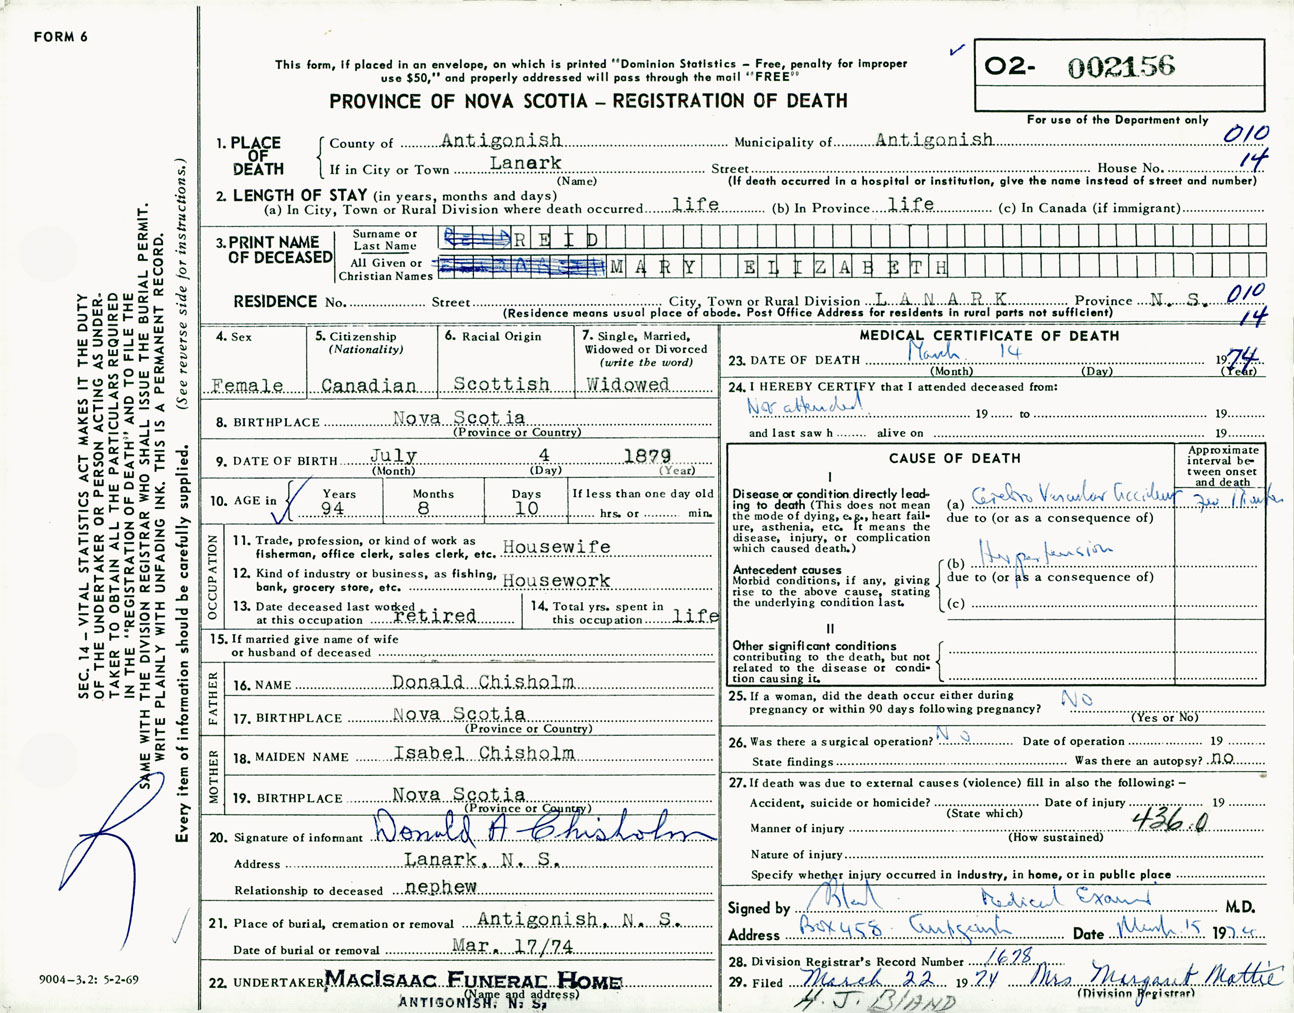 FORM 6
This form, if placed in an envelope, on which is printed "Dominion Statistics – Free, penalty for improper
use $50," and properly addressed will pass through the mail "FREE"
PROVINCE OF NOVA SCOTIA – REGISTRATION OF DEATH
O2- 002156
For use of the Department only
SEC. 14 – VITAL STATISTICS ACT MAKES IT THE DUTY
OF THE UNDERTAKER OR PERSON ACTING AS UNDER-
TAKER TO OBTAIN ALL THE PARTICULARS REQUIRED
IN THE "REGISTRATION OF DEATH" AND TO FILE THE
SAME WITH THE DIVISION REGISTRAR WHO SHALL ISSUE THE BURIAL PERMIT.
WRITE PLAINLY WITH UNFADING INK. THIS IS A PERMANENT RECORD.
Every item of information should be carefully supplied. (See reverse side for instructions.)
1. PLACE OF DEATH
County of Antigonish Municipality of Antigonish 010
If in City or Town Lanark Street House No. 14
(Name) (If death occurred in a hospital or institution, give the name instead of street and number)
2. LENGTH OF STAY (in years, months and days)
(a) In City, Town or Rural Division where death occurred life (b) In Province life (c) In Canada (if immigrant)
3. PRINT NAME OF DECEASED
Surname or Last Name REID
All Given or Christian Names MARY ELIZABETH
RESIDENCE No. Street City, Town or Rural Division LANARK Province N. S. 010
(Residence means usual place of abode. Post Office Address for residents in rural parts not sufficient) 14
4. Sex
Female
5. Citizenship
(Nationality)
Canadian
6. Racial Origin
Scottish
7. Single, Married,
Widowed or Divorced
(write the word)
Widowed
8. BIRTHPLACE Nova Scotia
(Province or Country)
9. DATE OF BIRTH July 4 1879
(Month) (Day) (Year)
10. AGE in
Years Months Days If less than one day old
94 8 10 hrs. or min.
OCCUPATION
11. Trade, profession, or kind of work as
fisherman, office clerk, sales clerk, etc. Housewife
12. Kind of industry or business, as fishing,
bank, grocery store, etc. Housework
13. Date deceased last worked
at this occupation retired
14. Total yrs. spent in
this occupation life
15. If married give name of wife
or husband of deceased
FATHER
16. NAME Donald Chisholm
17. BIRTHPLACE Nova Scotia
(Province or Country)
MOTHER
18. MAIDEN NAME Isabel Chisholm
19. BIRTHPLACE Nova Scotia
(Province or Country)
20. Signature of informant Donald A Chisholm
Address Lanark, N. S.
Relationship to deceased nephew
21. Place of burial, cremation or removal Antigonish, N. S.
Date of burial or removal Mar. 17/74
22. UNDERTAKER MacIsaac Funeral Home
(Name and address)
ANTIGONISH, N. S.
9004–3.2: 5-2-69
MEDICAL CERTIFICATE OF DEATH
23. DATE OF DEATH March 14 1974
(Month) (Day) (Year)
24. I HEREBY CERTIFY that I attended deceased from:
Not attended 19 to 19
and last saw h alive on 19
CAUSE OF DEATH
Approximate
interval be-
tween onset
and death
I
Disease or condition directly lead-
ing to death (This does not mean
the mode of dying, e.g., heart fail-
ure, asthenia, etc. It means the
disease, injury, or complication
which caused death.)
(a) Cerebro Vascular Accident
due to (or as a consequence of)
Antecedent causes
Morbid conditions, if any, giving
rise to the above cause, stating
the underlying condition last.
(b) Hypertension
due to (or as a consequence of)
(c)
II
Other significant conditions
contributing to the death, but not
related to the disease or condi-
tion causing it.
25. If a woman, did the death occur either during
pregnancy or within 90 days following pregnancy? No
(Yes or No)
26. Was there a surgical operation? No Date of operation 19
State findings Was there an autopsy? no
27. If death was due to external causes (violence) fill in also the following: –
Accident, suicide or homicide? Date of injury 19
(State which)
Manner of injury 436.0
(How sustained)
Nature of injury
Specify whether injury occurred in industry, in home, or in public place
Signed by Bland Medical Examiner M.D.
Address Box 458 Antigonish Date March 15 1974
28. Division Registrar's Record Number 1678
29. Filed March 22 1974 Mrs Margaret Mattie
(Division Registrar)
H. J. BLAND